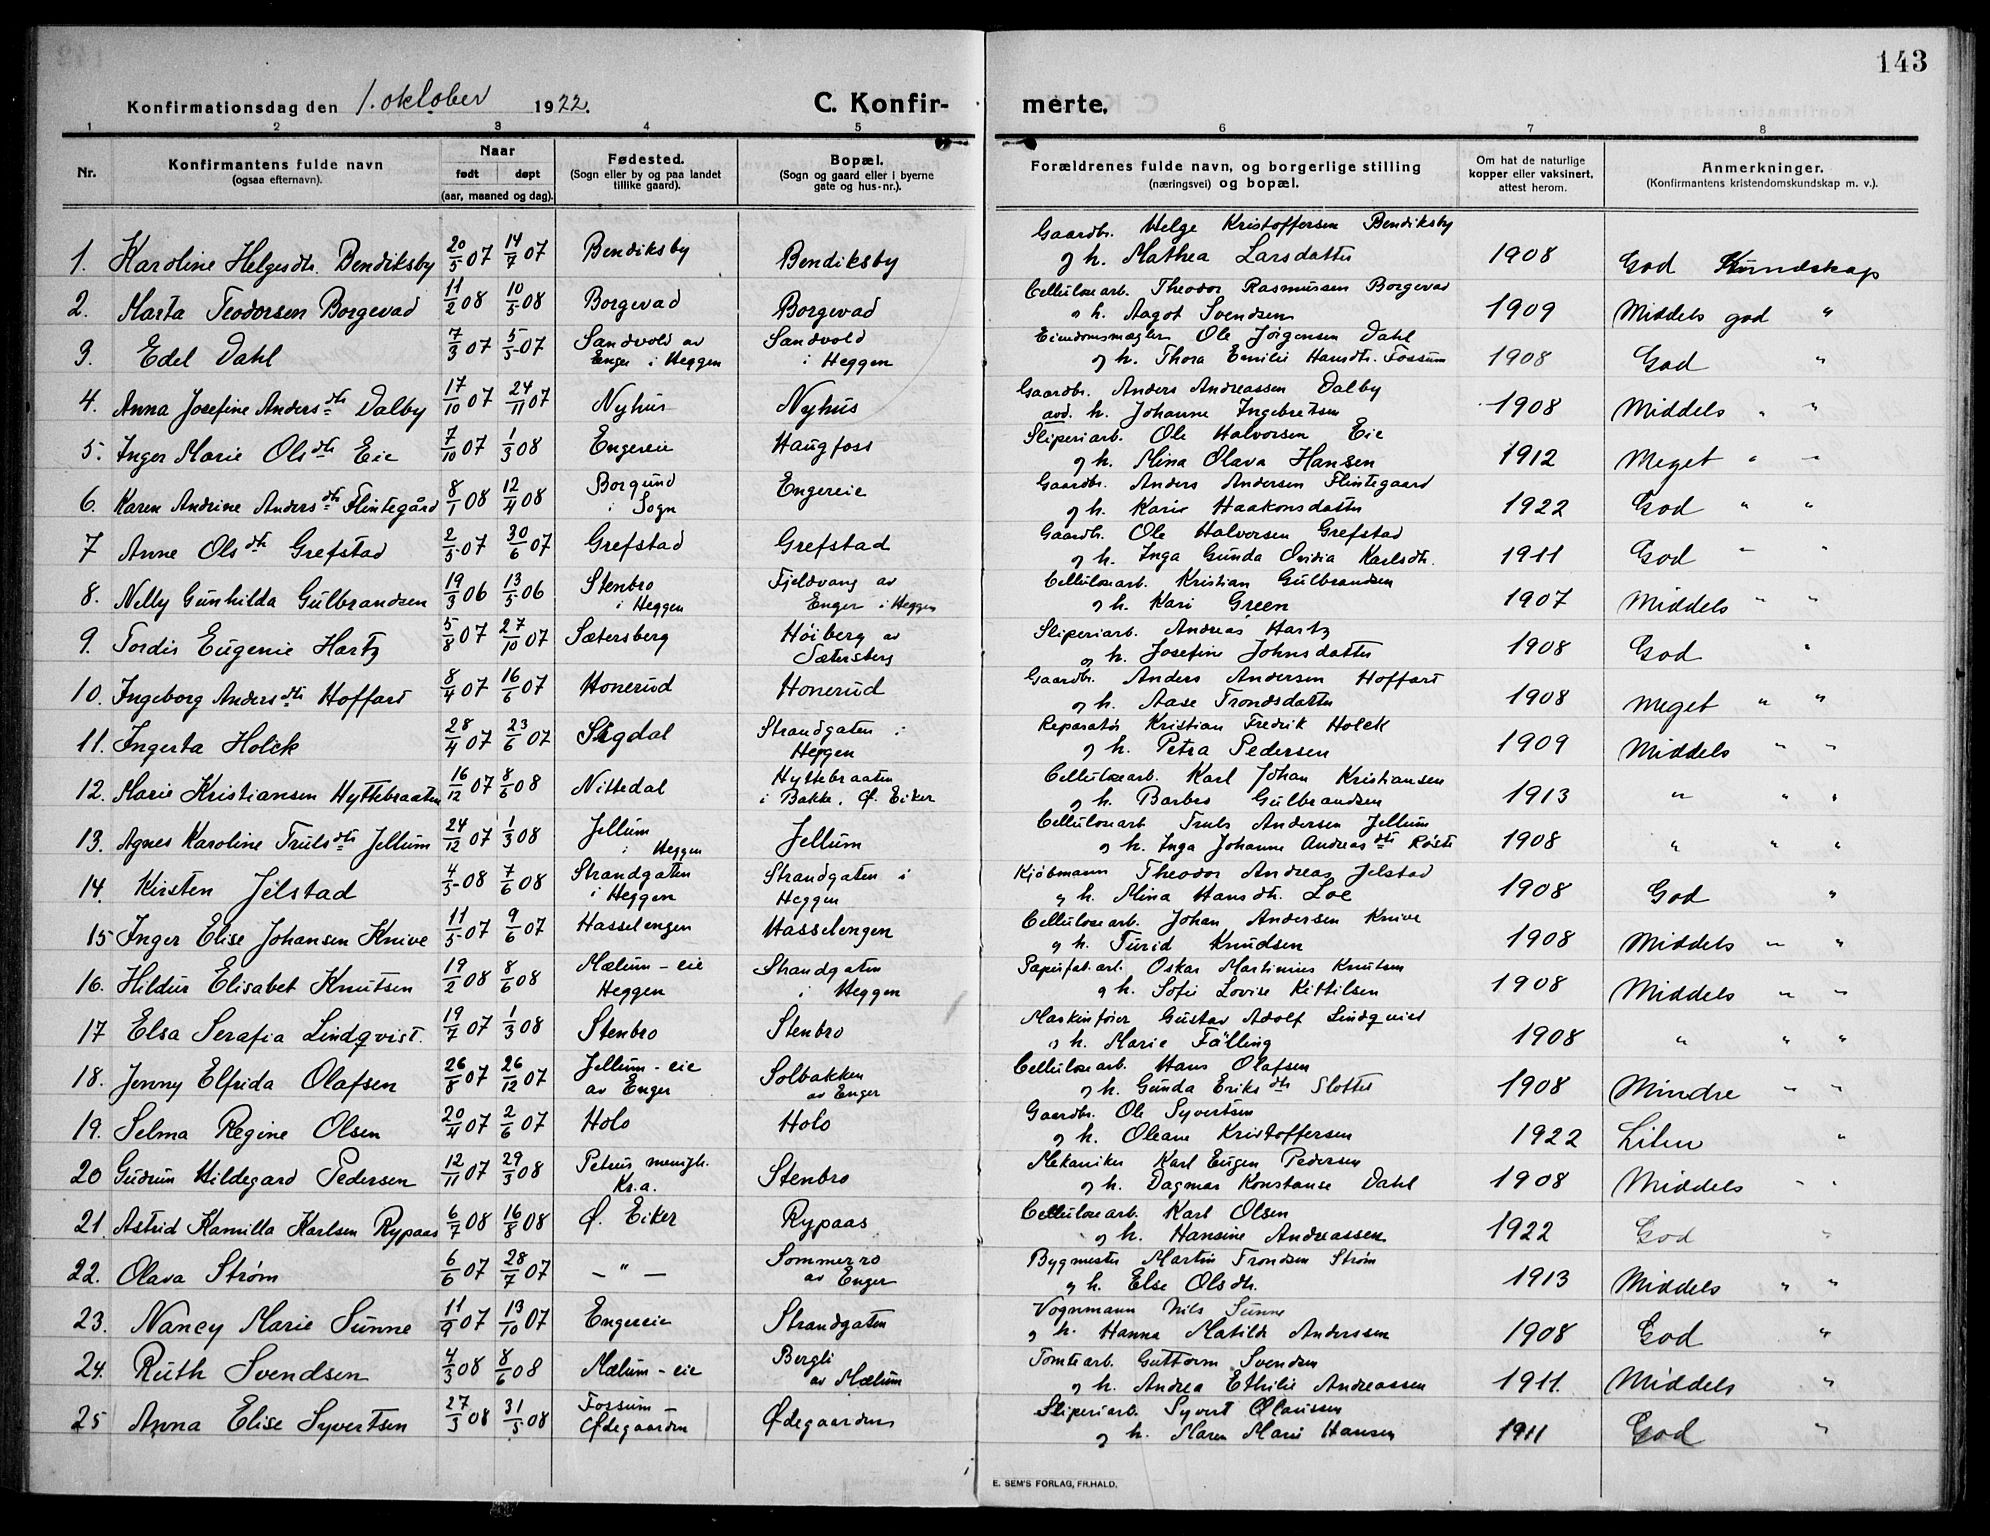 143
Konfirmationsdag den 1. oktober 1922. C. Konfirmerte.
1 2 3 4 5 6 7 8
Nr. Konfirmantens fulde navn (ogsaa efternavn). Naar født døpt (aar, maaned og dag). Fødested. (Sogn eller by og paa landet tillike gaard). Bopæl. (Sogn og gaard eller i byerne gate og hus-nr.). Forældrenes fulde navn, og borgerlige stilling (næringsvei) og bopæl. Om hat de naturlige kopper eller vaksinert, attest herom. Anmerkninger. (Konfirmantens kristendomskundskap m. v.).
1. Karoline Helgesdtr. Bendiksby 20/5 07 14/7 07 Bendiksby Bendiksby Gaardbr. Helge Kristoffersen Bendiksby og h. Mathea Larsdatter 1908 God Kundskap
2. Marta Teodorsen Borgevad 11/2 08 10/5 08 Borgevad Borgevad Cellulosearb. Theodor Rasmussen Borgevad og h. Aagot Svendsen 1909 Middels god "
3. Edel Dahl 7/3 07 5/5 07 Sandvold av Enger i Heggen Sandvold i Heggen Eiendomsmægler Ole Jørgensen Dahl og h. Thora Emilie Hansdtr. Fossum 1908 God "
4. Anna Josefine Andersdtr Dalby 17/10 07 24/11 07 Nyhus Nyhus Gaardbr. Anders Andreassen Dalby avd. h. Johanne Ingebretsen 1908 Middels " "
5. Inger Marie Olsdtr Eie 7/10 07 1/3 08 Engereie Haugfoss Sliperiarb. Ole Halvorsen Eie og h. Mina Olava Hansen 1912 Meget " "
6. Karen Andrine Andersdtr Flintegård 8/1 08 12/4 08 Borgund i Sogn Engereie Gaardbr. Anders Andersen Flintegaard og h. Karie Haakonsdatter 1922 God " "
7 Anne Olsdtr Grefstad 2/5 07 30/6 07 Grefstad Grefstad Gaardbr. Ole Halvorsen Grefstad og h. Inga Gunda Ovidia Karlsdtr. 1911 God " "
8. Nelly Gunhilda Gulbrandsen 19/3 06 13/5 06 Stenbro i Heggen Fjeldvang av Enger i Heggen Cellulosearb. Kristian Gulbrandsen og h. Kari Green 1907 Middels " "
9. Tordis Eugenie Hartz 5/8 07 27/10 07 Sætersberg Høiberg av Sætersberg Sliperiarb. Andreas Hartz og h. Josefine Johnsdatter 1908 God "
10. Ingeborg Andersdtr Hoffart 8/4 07 16/6 07 Honerud Honerud Gaardbr. Anders Andersen Hoffart og h. Aase Trondsdatter 1908 Meget " "
11. Ingerta Holck 28/4 07 23/6 07 Sigdal Strandgaten i Heggen Reparatør Kristian Fredrik Holck og h. Petra Pedersen 1909 Middels " "
12. Marie Kristiansen Hyttebraaten 16/12 07 8/6 08 Nittedal Hyttebraaten i Bakke, Ø. Eiker Cellulosearb. Karl Johan Kristiansen og h. Barbro Gulbrandsen 1913 " " "
13. Agnes Karoline Trulsdtr Jellum 24/12 07 1/3 08 Jellum i Heggen Jellum Cellulosearb Truls Andersen Jellum og h. Inga Johanne Andreasdtr Røste 1908 " " "
14. Kirsten Jelstad 4/3 08 7/6 08 Strandgaten i Heggen Strandgaten i Heggen Kjøbmann Theodor Andreas Jelstad og h. Mina Hansdtr. Loe 1908 God "
15 Inger Elise Johansen Knive 11/5 07 9/6 07 Hasselengen Hasselengen Cellulosearb. Johan Andersen Knive og h. Turid Knudsen 1908 Middels " "
16. Hildur Elisabet Knutsen 19/2 08 8/6 08 Mælum-eie Heggen Strandgaten i Heggen Papirfab.arb. Oskar Martinius Knutsen og h. Sofie Lovise Kittilsen 1908 Middels " "
17 Elsa Serafia Lindqvist. 19/7 07 1/3 08 Stenbro Stenbro Maskinfører Gustav Adolf Lindqvist og h. Marie Fälling 1908 " " "
18. Jenny Elfrida Olafsen 26/8 07 26/12 07 Jellum-eie av Enger Solbakken av Enger Cellulosearb. Hans Olafsen og h. Gunda Eriksdtr Slotte 1908 Mindre " "
19. Selma Regine Olsen 20/4 07 2/6 07 Holo Holo Gaardbr. Ole Syvertsen og h. Oleane Kristoffersen 1922 Liten "
20 Gudrun Hildegard Pedersen 12/11 07 29/3 08 Petrus menigh. Kr.a. Stenbro Mekaniker Karl Eugen Pedersen og h. Dagmar Konstanse Dahl 1908 Middels " "
21. Astrid Kamilla Karlsen Rypaas 6/7 08 16/8 08 Ø. Eiker Rypaas Cellulosearb. Karl Olsen og h. Hansine Andreassen 1922 God "
22. Olava Strøm 6/6 07 28/7 07 — " — Sommerro av Enger Bygmester Martin Trondsen Strøm og h. Else Olsdtr. 1913 Middels " "
23. Nancy Marie Sunne 11/9 07 13/10 07 Engereie Strandgaten Vognmann Nils Sunne og h. Hanna Matilde Anderssen 1908 God "
24. Ruth Svendsen 4/3 08 8/6 08 Mælum-eie Bergli av Mælum Tomtearb. Guttorm Svendsen og h. Andrea Ethilie Andreassen 1911. Middels "
25 Anna Elise Syvertsen 27/3 08 31/5 08 Fossum-Ødegaarden Ødegaarden Sliperiarb. Syvert Olaussen og h. Maren Marie Hansen 1911 God "
E. SEM'S FORLAG, FR.HALD.